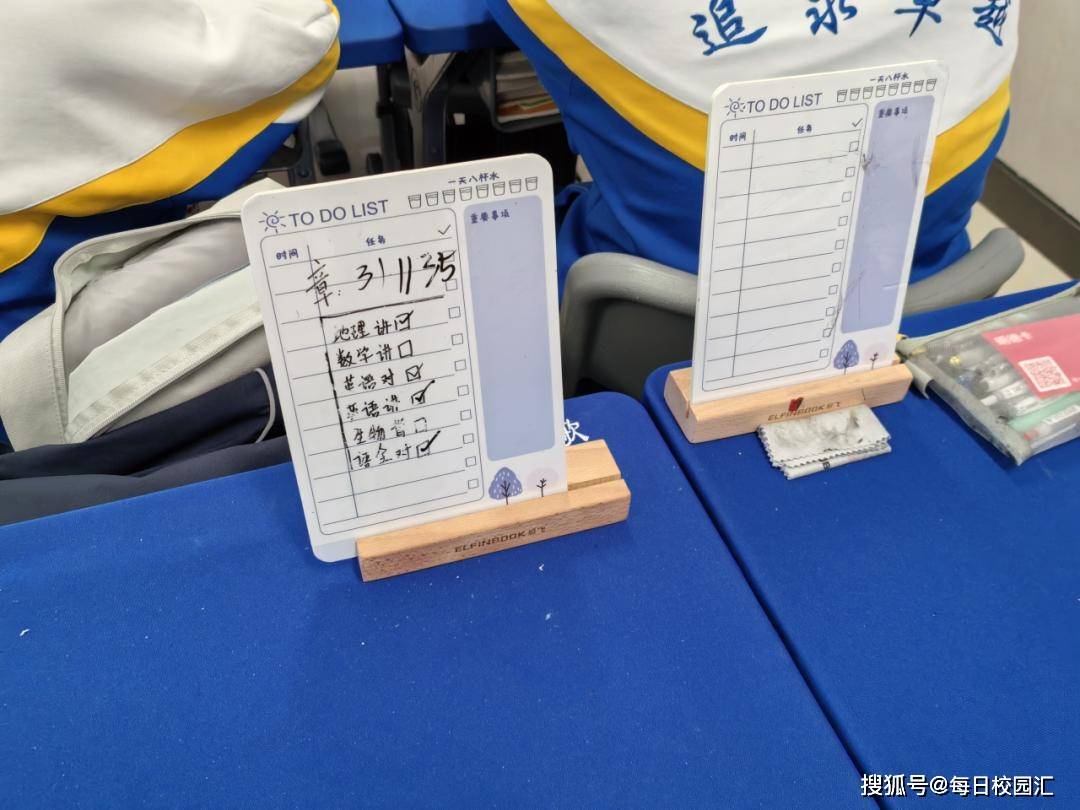 追求卓越
一天八杯水
TO DO LIST
重要事项
时间 任务
一天八杯水
TO DO LIST
重要事项
时间 任务
章: 311135
地理讲
数学讲
英语对
英语讲
生物
语全对
ELFINBOOK
ELFINBOOK
搜狐号@每日校园汇